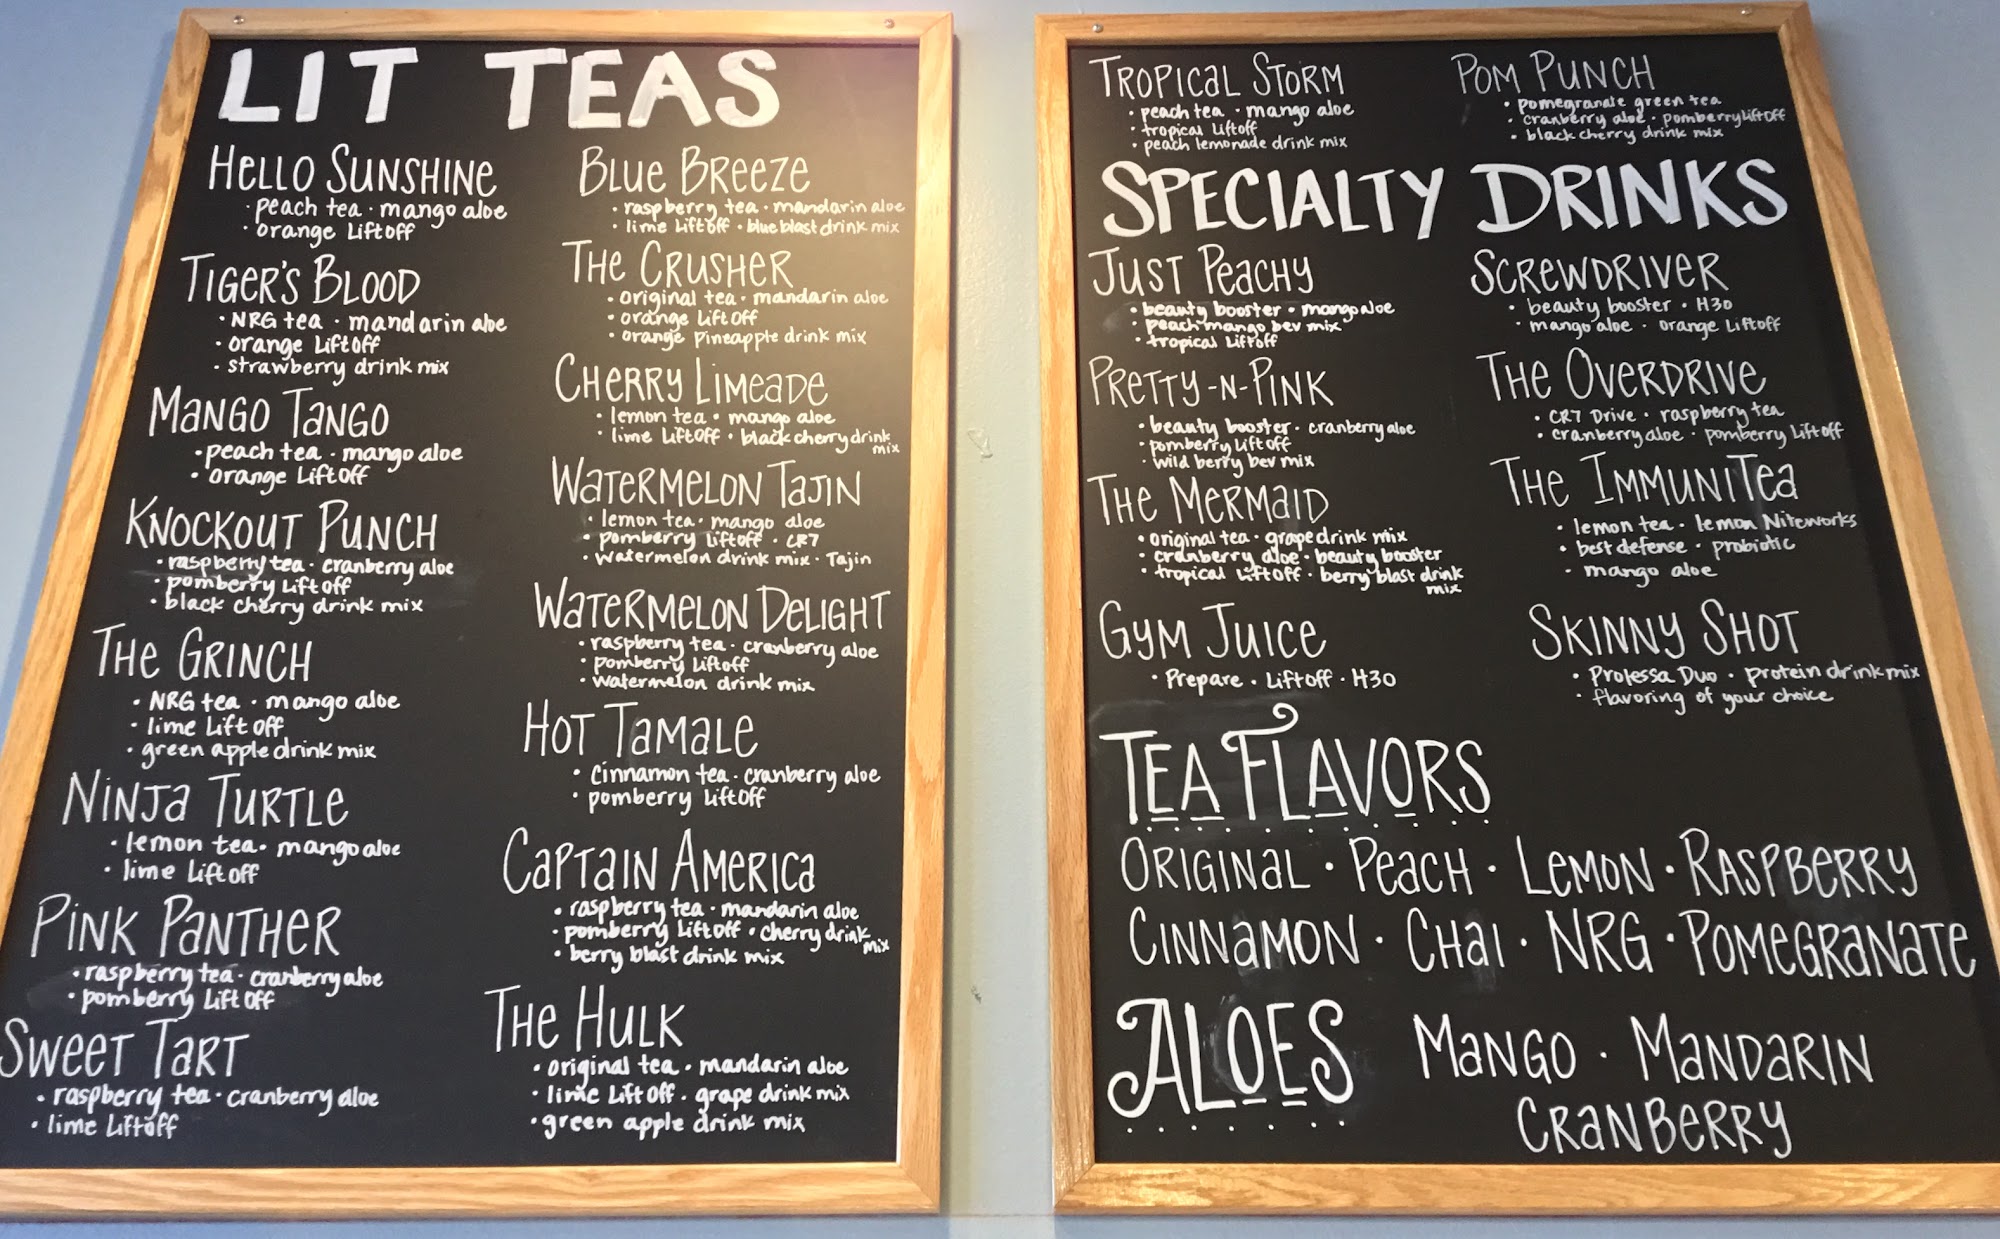 LIT TEAS
HELLO SUNSHINE
· peach tea · mango aloe
· orange Liftoff
TIGER'S BLOOD
· NRG tea · mandarin aloe
· orange Liftoff
· strawberry drink mix
MANGO TANGO
· peach tea · mango aloe
· orange Liftoff
KNOCKOUT PUNCH
· raspberry tea · cranberry aloe
· pomberry Liftoff
· black cherry drink mix
THE GRINCH
· NRG tea · mango aloe
· lime Liftoff
· green apple drink mix
NINJA TURTLE
· lemon tea · mango aloe
· lime Liftoff
PINK PANTHER
· raspberry tea · cranberry aloe
· pomberry Liftoff
SWEET TART
· raspberry tea · cranberry aloe
· lime Liftoff
BLUE BREEZE
· raspberry tea · mandarin aloe
· lime Liftoff · blue blast drink mix
THE CRUSHER
· original tea · mandarin aloe
· orange Liftoff
· orange pineapple drink mix
CHERRY LIMEADE
· lemon tea · mango aloe
· lime Liftoff · black cherry drink
mix
WATERMELON TAJIN
· lemon tea · mango aloe
· pomberry Liftoff · CR7
· watermelon drink mix · Tajin
WATERMELON DELIGHT
· raspberry tea · cranberry aloe
· pomberry Liftoff
· watermelon drink mix
HOT TAMALE
· cinnamon tea · cranberry aloe
· pomberry Liftoff
CAPTAIN AMERICA
· raspberry tea · mandarin aloe
· pomberry Liftoff · cherry drink
mix
· berry blast drink mix
THE HULK
· original tea · mandarin aloe
· lime Liftoff · grape drink mix
· green apple drink mix
TROPICAL STORM
· peach tea · mango aloe
· tropical Liftoff
· peach lemonade drink mix
POM PUNCH
· pomegranate green tea
· cranberry aloe · pomberry Liftoff
· black cherry drink mix
SPECIALTY DRINKS
JUST PEACHY
· beauty booster · mango aloe
· peach mango bev mix
· tropical Liftoff
PRETTY-N-PINK
· beauty booster · cranberry aloe
· pomberry Liftoff
· wild berry bev mix
THE MERMAID
· original tea · grape drink mix
· cranberry aloe · beauty booster
· tropical Liftoff · berry blast drink
mix
GYM JUICE
· Prepare · Liftoff · H30
SCREWDRIVER
· beauty booster · H30
· mango aloe · orange Liftoff
THE OVERDRIVE
· CR7 Drive · raspberry tea
· cranberry aloe · pomberry Liftoff
THE IMMUNITEA
· lemon tea · lemon Niteworks
· best defense · probiotic
· mango aloe
SKINNY SHOT
· Prolessa Duo · protein drink mix
· flavoring of your choice
TEA FLAVORS
ORIGINAL · PEACH · LEMON · RASPBERRY
CINNAMON · CHAI · NRG · POMEGRANATE
ALOES
MANGO · MANDARIN
CRANBERRY